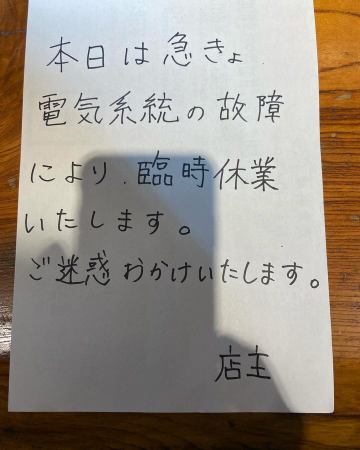 本日は急きょ
電気系統の故障
により、臨時休業
いたします。
ご迷惑おかけいたします。
店主